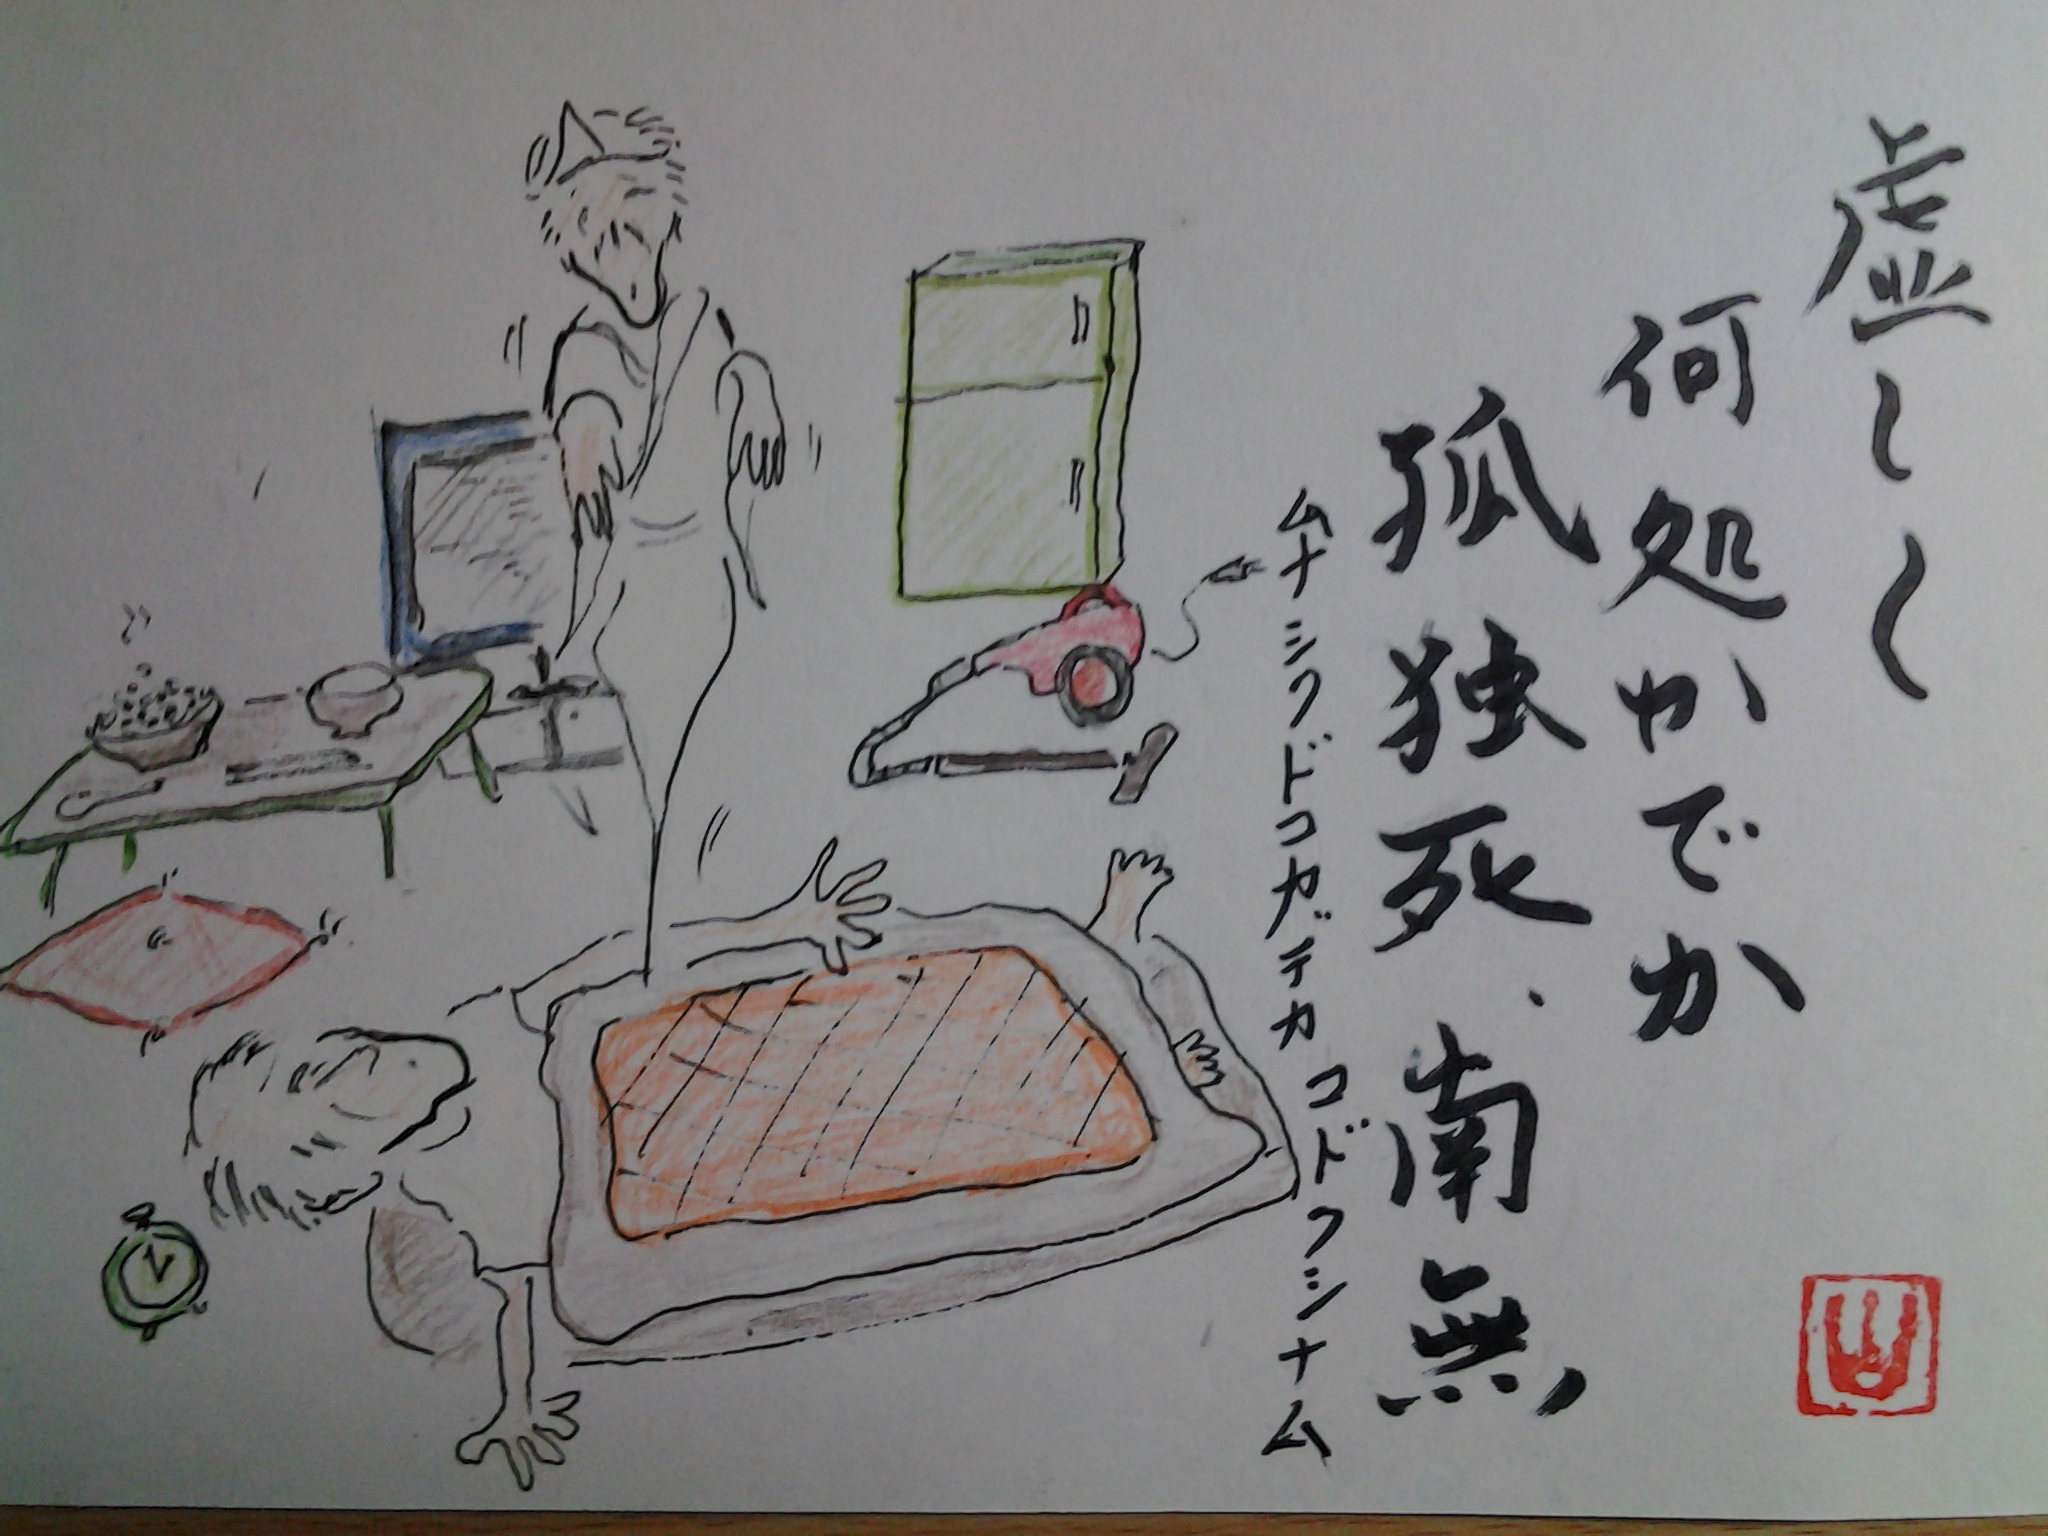 虚しく
何処かでか
孤独死、南無
ムナシクドコカデカ コドクシナム